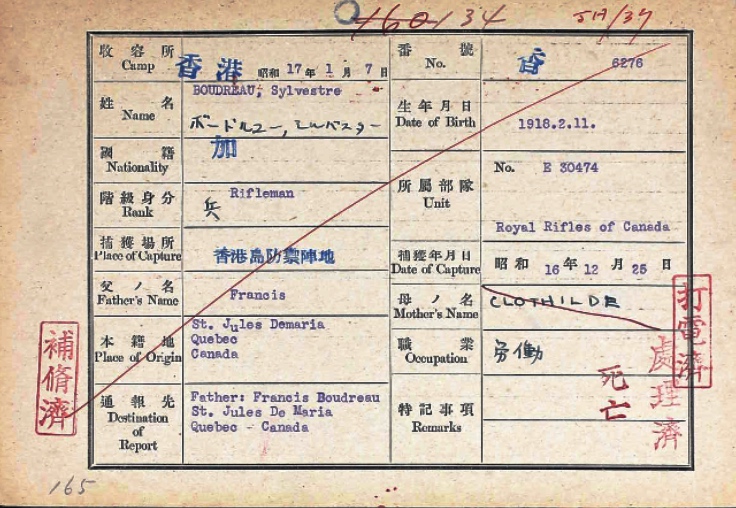 160134
5月/37
收容所
Camp
香港
昭和 17年 1月 7日
番號
No.
香 6276
姓名
Name
BOUDREAU, Sylvestre
ボードルユー, シルバスター
生年月日
Date of Birth
1918.2.11.
國籍
Nationality
加
階級身分
Rank
Rifleman
兵
所属部隊
Unit
No. E 30474
Royal Rifles of Canada
捕獲場所
Place of Capture
香港島防禦陣地
捕獲年月日
Date of Capture
昭和 16年 12月 25日
父ノ名
Father's Name
Francis
母ノ名
Mother's Name
CLOTHILDE
本籍地
Place of Origin
St. Jules Demaria
Quebec
Canada
職業
Occupation
労働
通報先
Destination
of
Report
Father: Francis Boudreau
St. Jules De Maria
Quebec - Canada
特記事項
Remarks
死亡
處理濟
打電濟
補脩濟
165